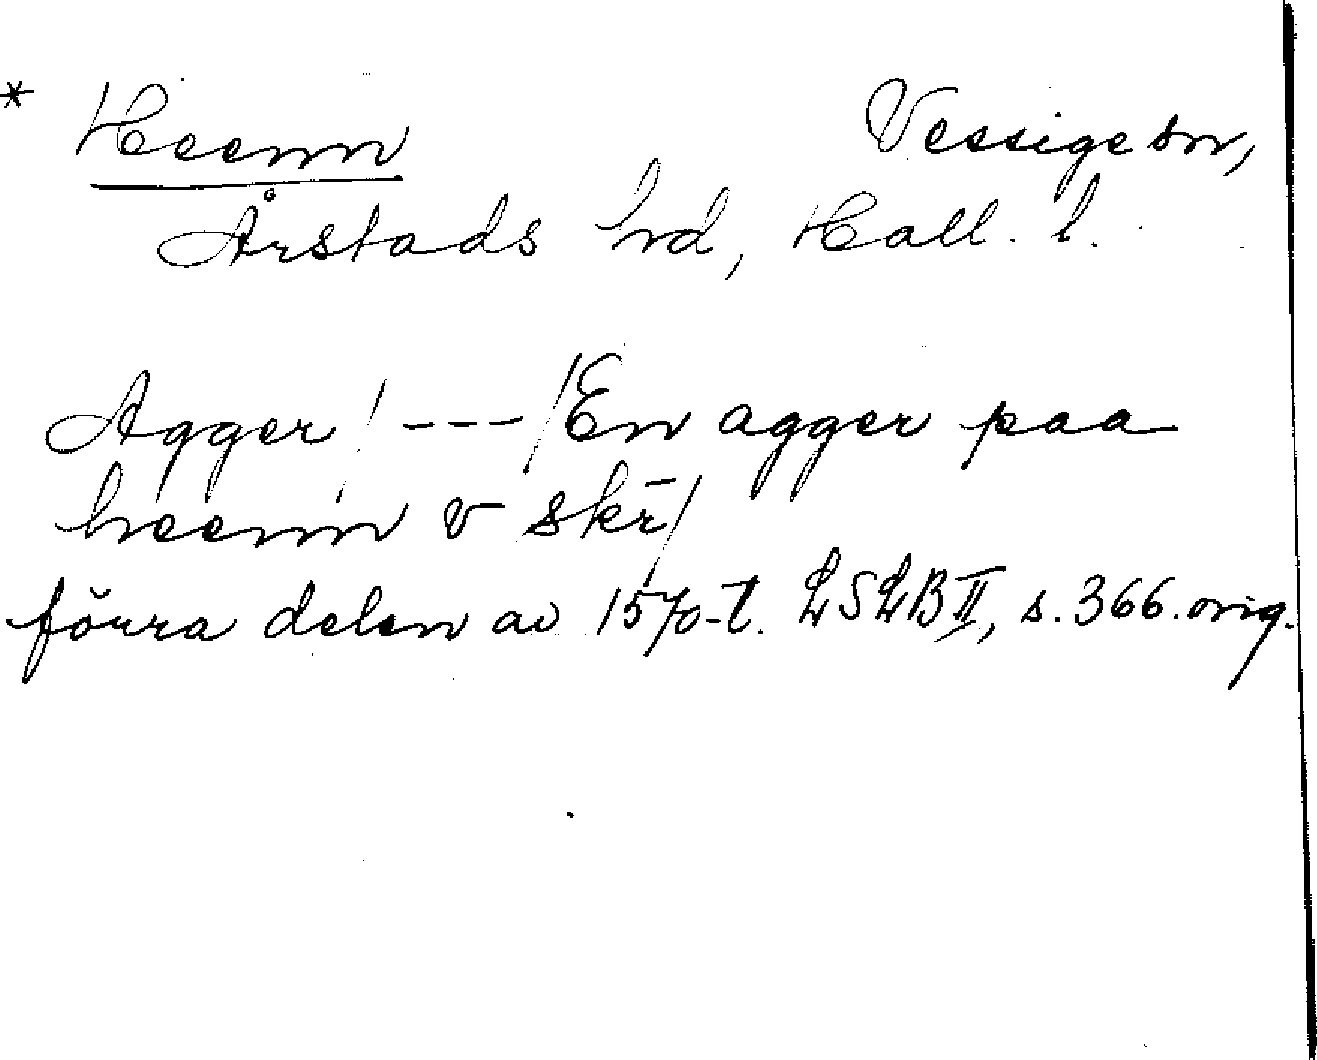 * Heenn Vessige sn,
Årstads hd, Hall. l.
Agger / --- / En agger paa
heenn v skr /
förra delen av 1570-t. LSLB II, s. 366. orig.